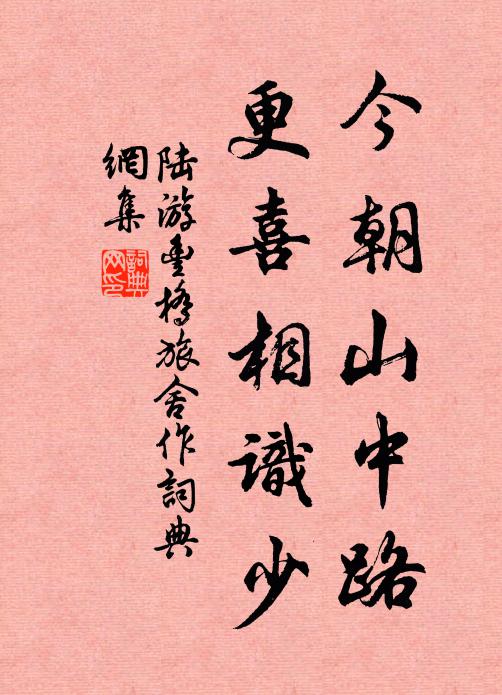 今朝山中路
更喜相識少
陆游豐橋旅舍作詞典
網集
詞典
网印